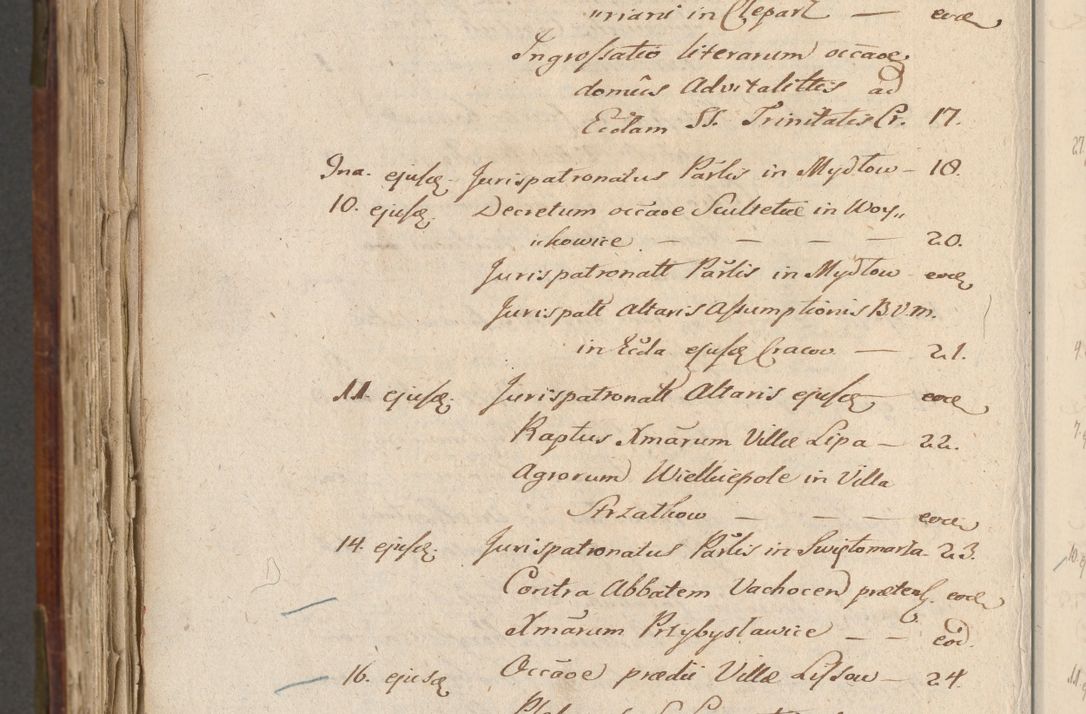 in Clepar — eod
Ingrossatio literarum occãoe
domûs Advitalittis ad
Ecclam SS. Trinitatis Cr. 17.
9na. ejusd. Jurispatronatus Pârlis in Mydlow – 18.
10. ejusd. Decretum occãoe Scultetiæ in Woy„
ickowice — — — — 20.
Jurispatronatt Pârlis in Mydlow – eod
Jurispatt Altaris Assumptionis B.V.M.
in Eccla ejusd Cracov. — 21.
11. ejusd. Jurispatronatt Altaris ejusd — eod
Raptus Xmãrum Villæ Lipa – 22.
Agrorum Wielkiepole in Villa
Strzałkow — — — eod
14. ejusd. Jurispatronatus Pârlis in Swiętomarza – 23.
Contra Abbatem Vachocen prætens. eod
Xmãrum Przybysławice — — eod.
16. ejusd Occãoe prædii Villæ Lissow — 24.